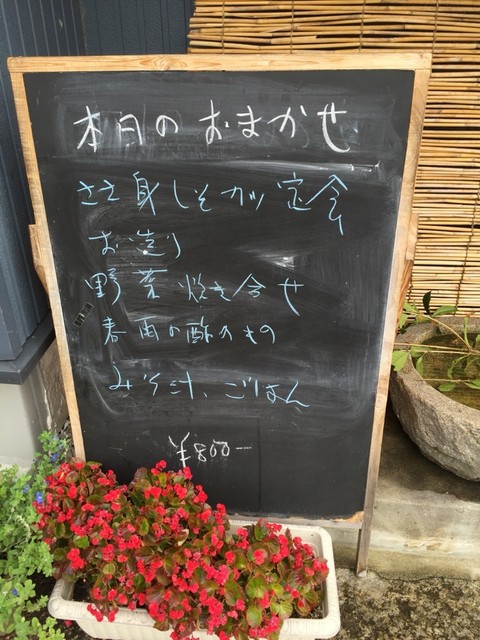 本日のおまかせ
ささ身しそカツ定食
お造り
野菜炊き合せ
春雨の酢のもの
みそ汁、ごはん
¥800-